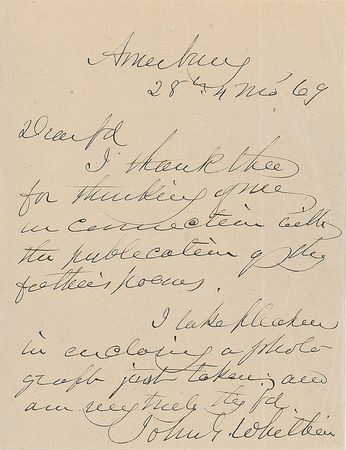 Amesbury
28th 4 Mo 69
Dear fd
I thank thee
for thinking of me
in connection with
the publication of thy
father's poems.
I take pleasure
in enclosing a photo
graph just taken; and
am very truly thy fd
John G Whittier